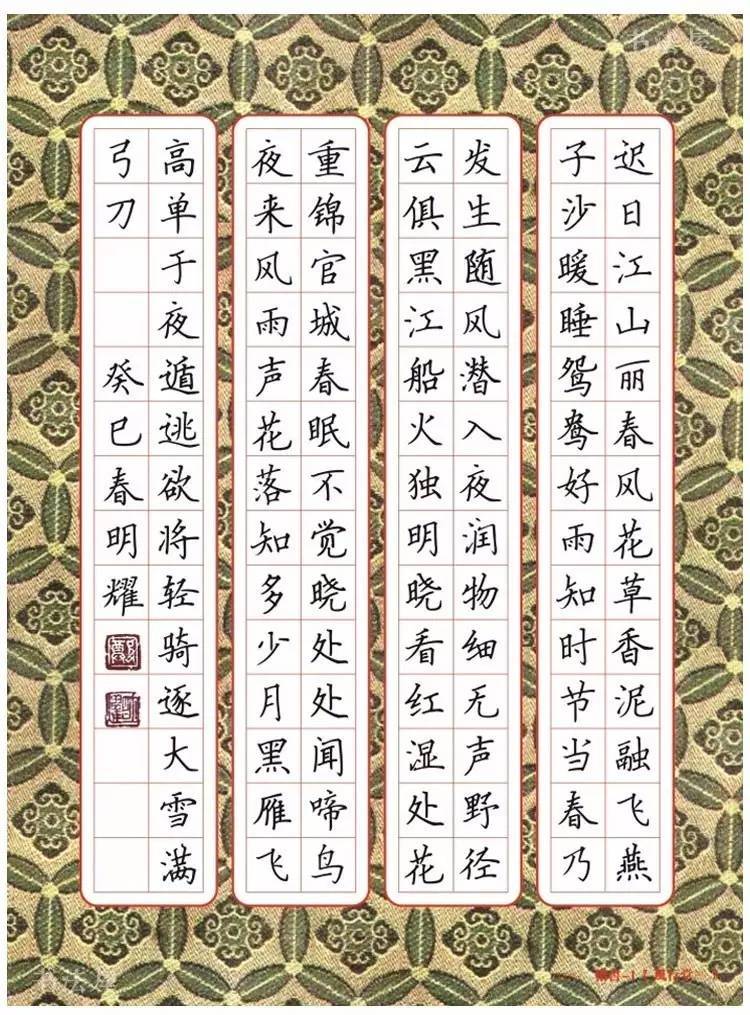 迟日江山丽春风花草香泥融飞燕
子沙暖睡鸳鸯好雨知时节当春乃
发生随风潜入夜润物细无声野径
云俱黑江船火独明晓看红湿处花
重锦官城春眠不觉晓处处闻啼鸟
夜来风雨声花落知多少月黑雁飞
高单于夜遁逃欲将轻骑逐大雪满
弓刀
癸巳春明耀
书法屋
书法屋